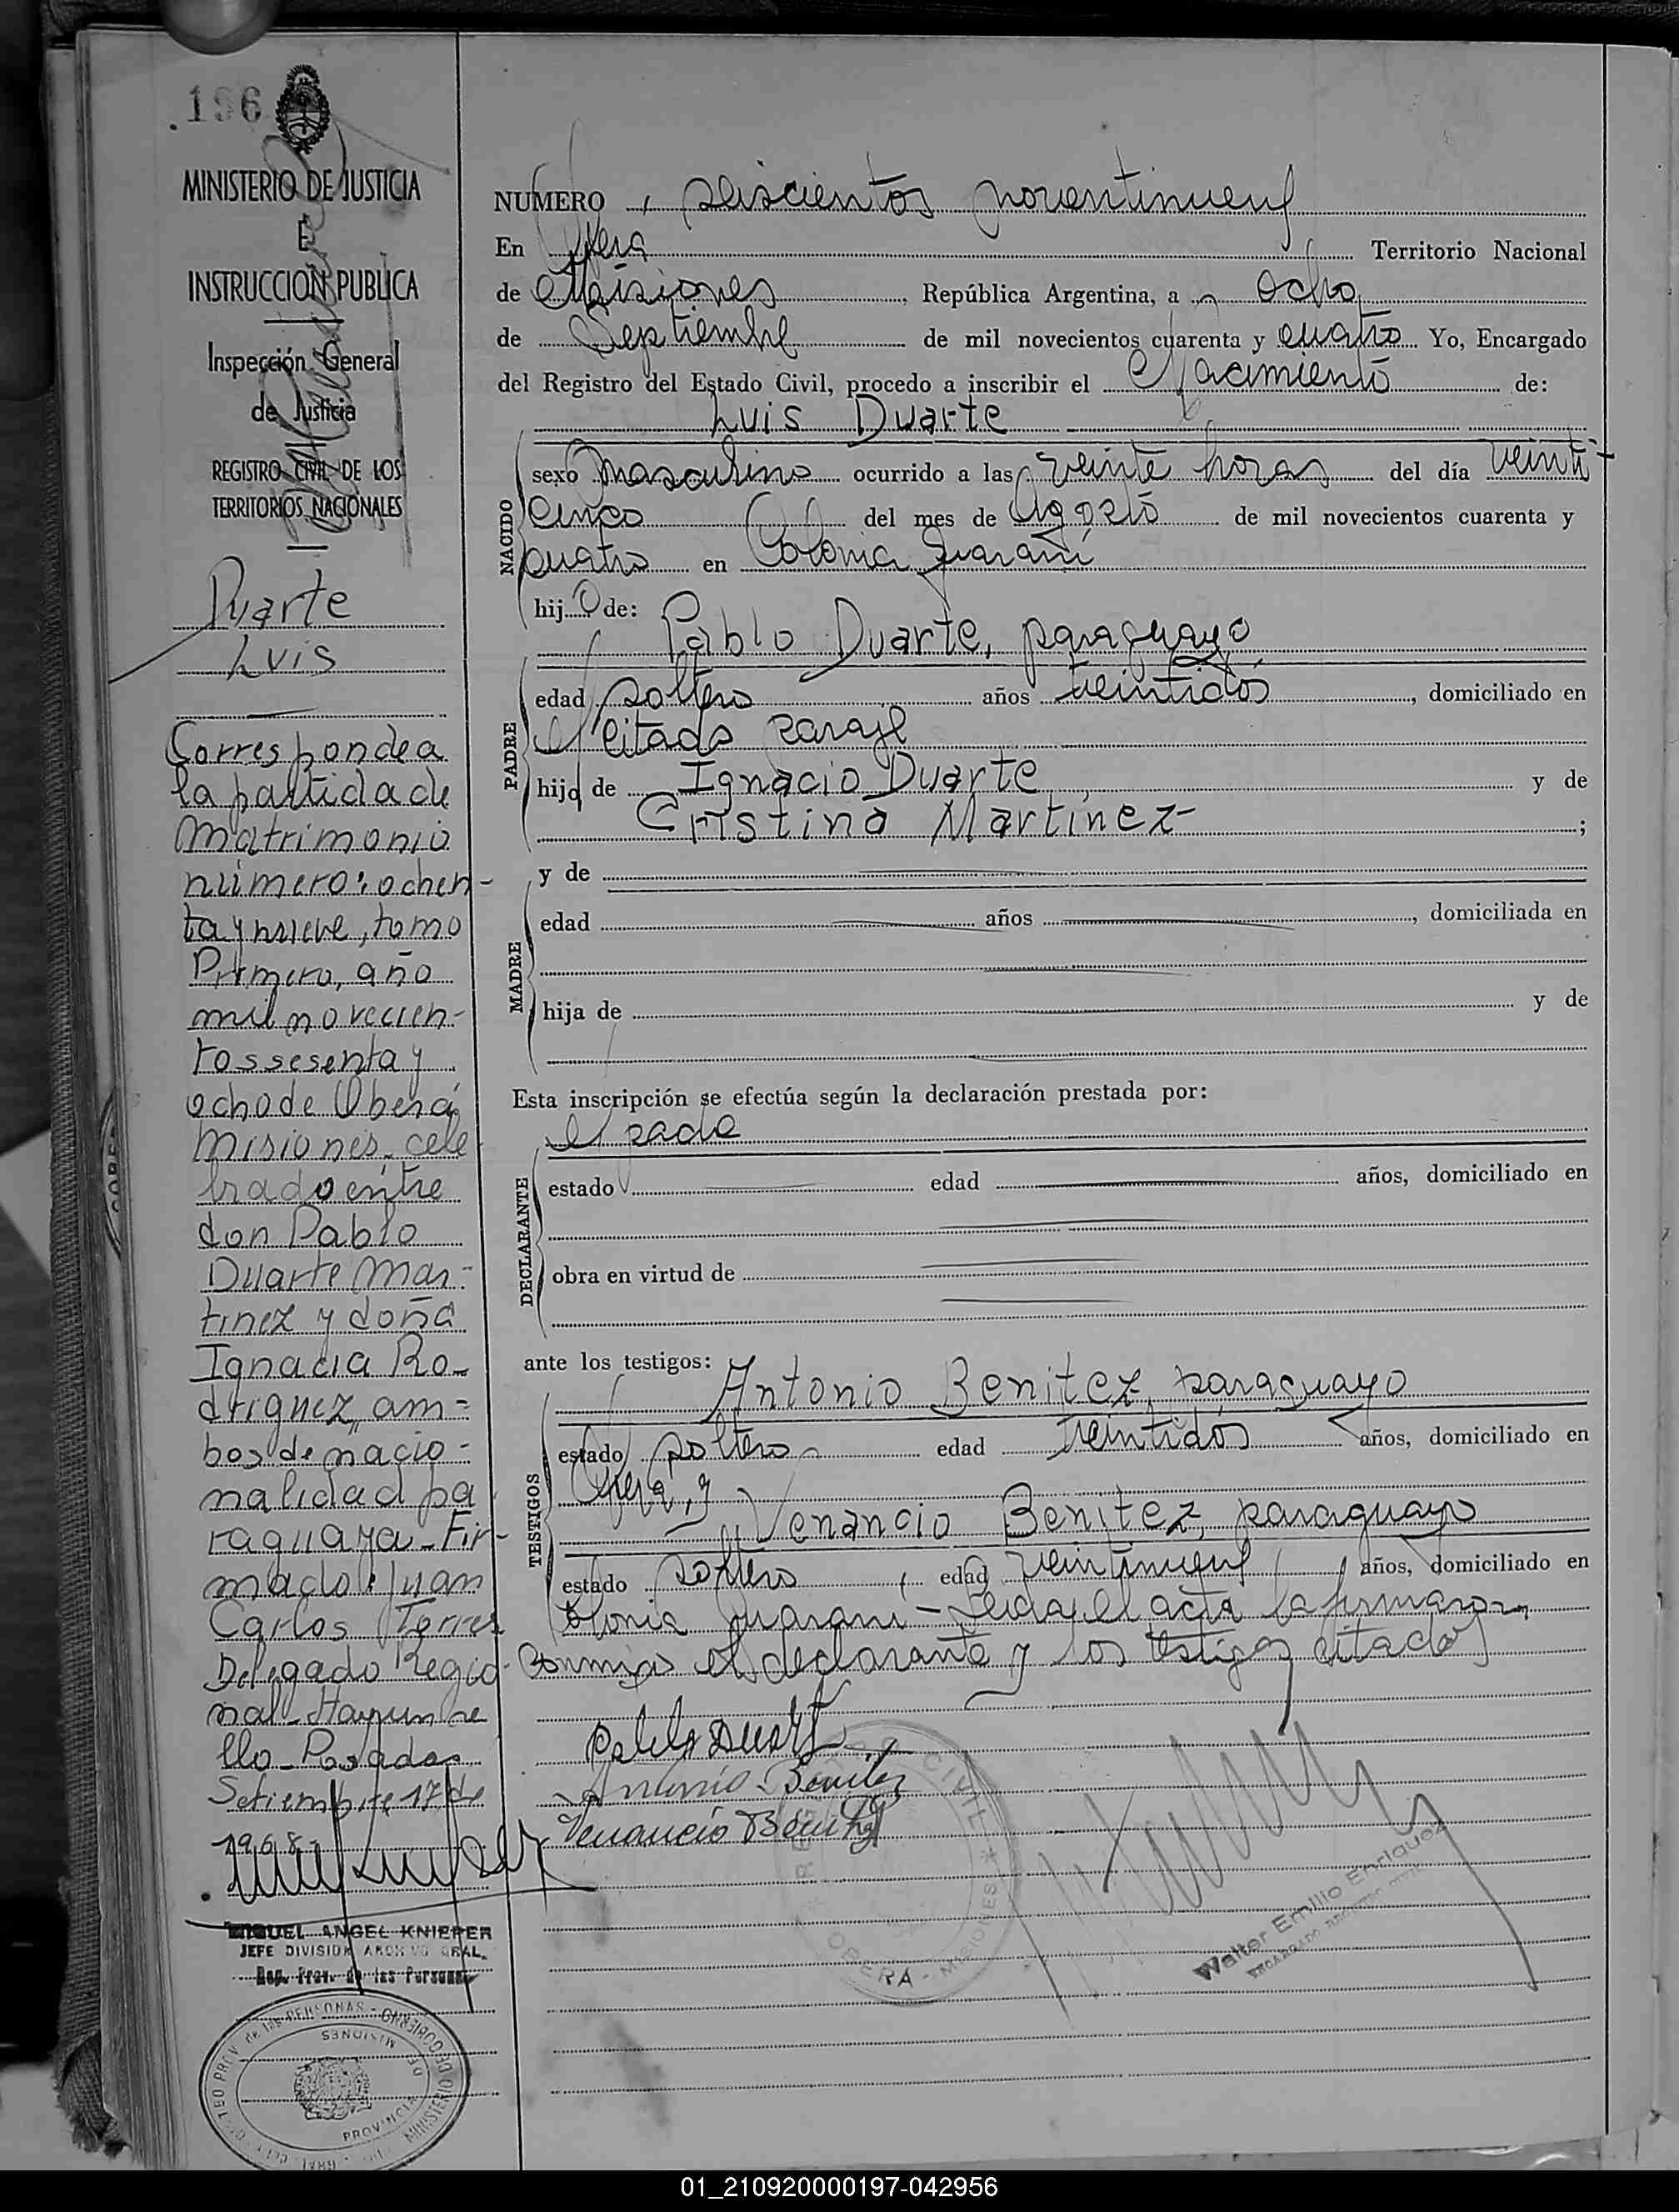 196
MINISTERIO DE JUSTICIA
E
INSTRUCCION PUBLICA
Inspección General
de Justicia
REGISTRO CIVIL DE LOS
TERRITORIOS NACIONALES
Duarte
Luis
Corresponde a
la partida de
matrimonio
número: ochen-
ta y nueve, tomo
Primero, año
mil novecien-
tos sesenta y
ocho de Oberá,
misiones, cele
brado entre
don Pablo
Duarte Mar-
tinez y doña
Ignacia Ro-
driguez, am-
bos de nacio-
nalidad pa
raguaya - Fir-
mado: Juan
Carlos Torres
Delegado Regio-
nal - Hay un se
llo - Posadas
Setiembre 17 de
1968-
MIGUEL ANGEL KNIEPER
JEFE DIVISION ARCHIVO GRAL.
Reg. Prov. de las Personas
MINISTERIO DE GOBIERNO
PROVINCIA DE MISIONES
NUMERO seiscientos noventinueve
En Oberá Territorio Nacional
de Misiones, República Argentina, a ocho
de Septiembre de mil novecientos cuarenta y cuatro Yo, Encargado
del Registro del Estado Civil, procedo a inscribir el Nacimiento de:
Luis Duarte
NACIDO
sexo masculino ocurrido a las veinte horas del día veinti-
cinco del mes de Agosto de mil novecientos cuarenta y
cuatro en Colonia Guaraní
hijo de:
Pablo Duarte, paraguayo
PADRE
edad soltero años treintidós, domiciliado en
el citado paraje
hijo de Ignacio Duarte y de
Cristina Martínez-;
MADRE
y de
edad años, domiciliada en
hija de y de
Esta inscripción se efectúa según la declaración prestada por:
el padre
DECLARANTE
estado edad años, domiciliado en
obra en virtud de
ante los testigos:
Antonio Benitez, paraguayo
TESTIGOS
estado soltero edad treintidós años, domiciliado en
Oberá, y
Venancio Benitez, paraguayo
estado soltero, edad veintinueve años, domiciliado en
Colonia Guaraní - Leída el acta la firmaron
conmigo el declarante y los testigos citados
Pablo Duarte
Antonio Benitez
Venancio Benitez
REGISTRO CIVIL
OBERA - MISIONES
Walter Emilio Enriquez
ENCARGADO REGISTRO CIVIL
01_210920000197-042956